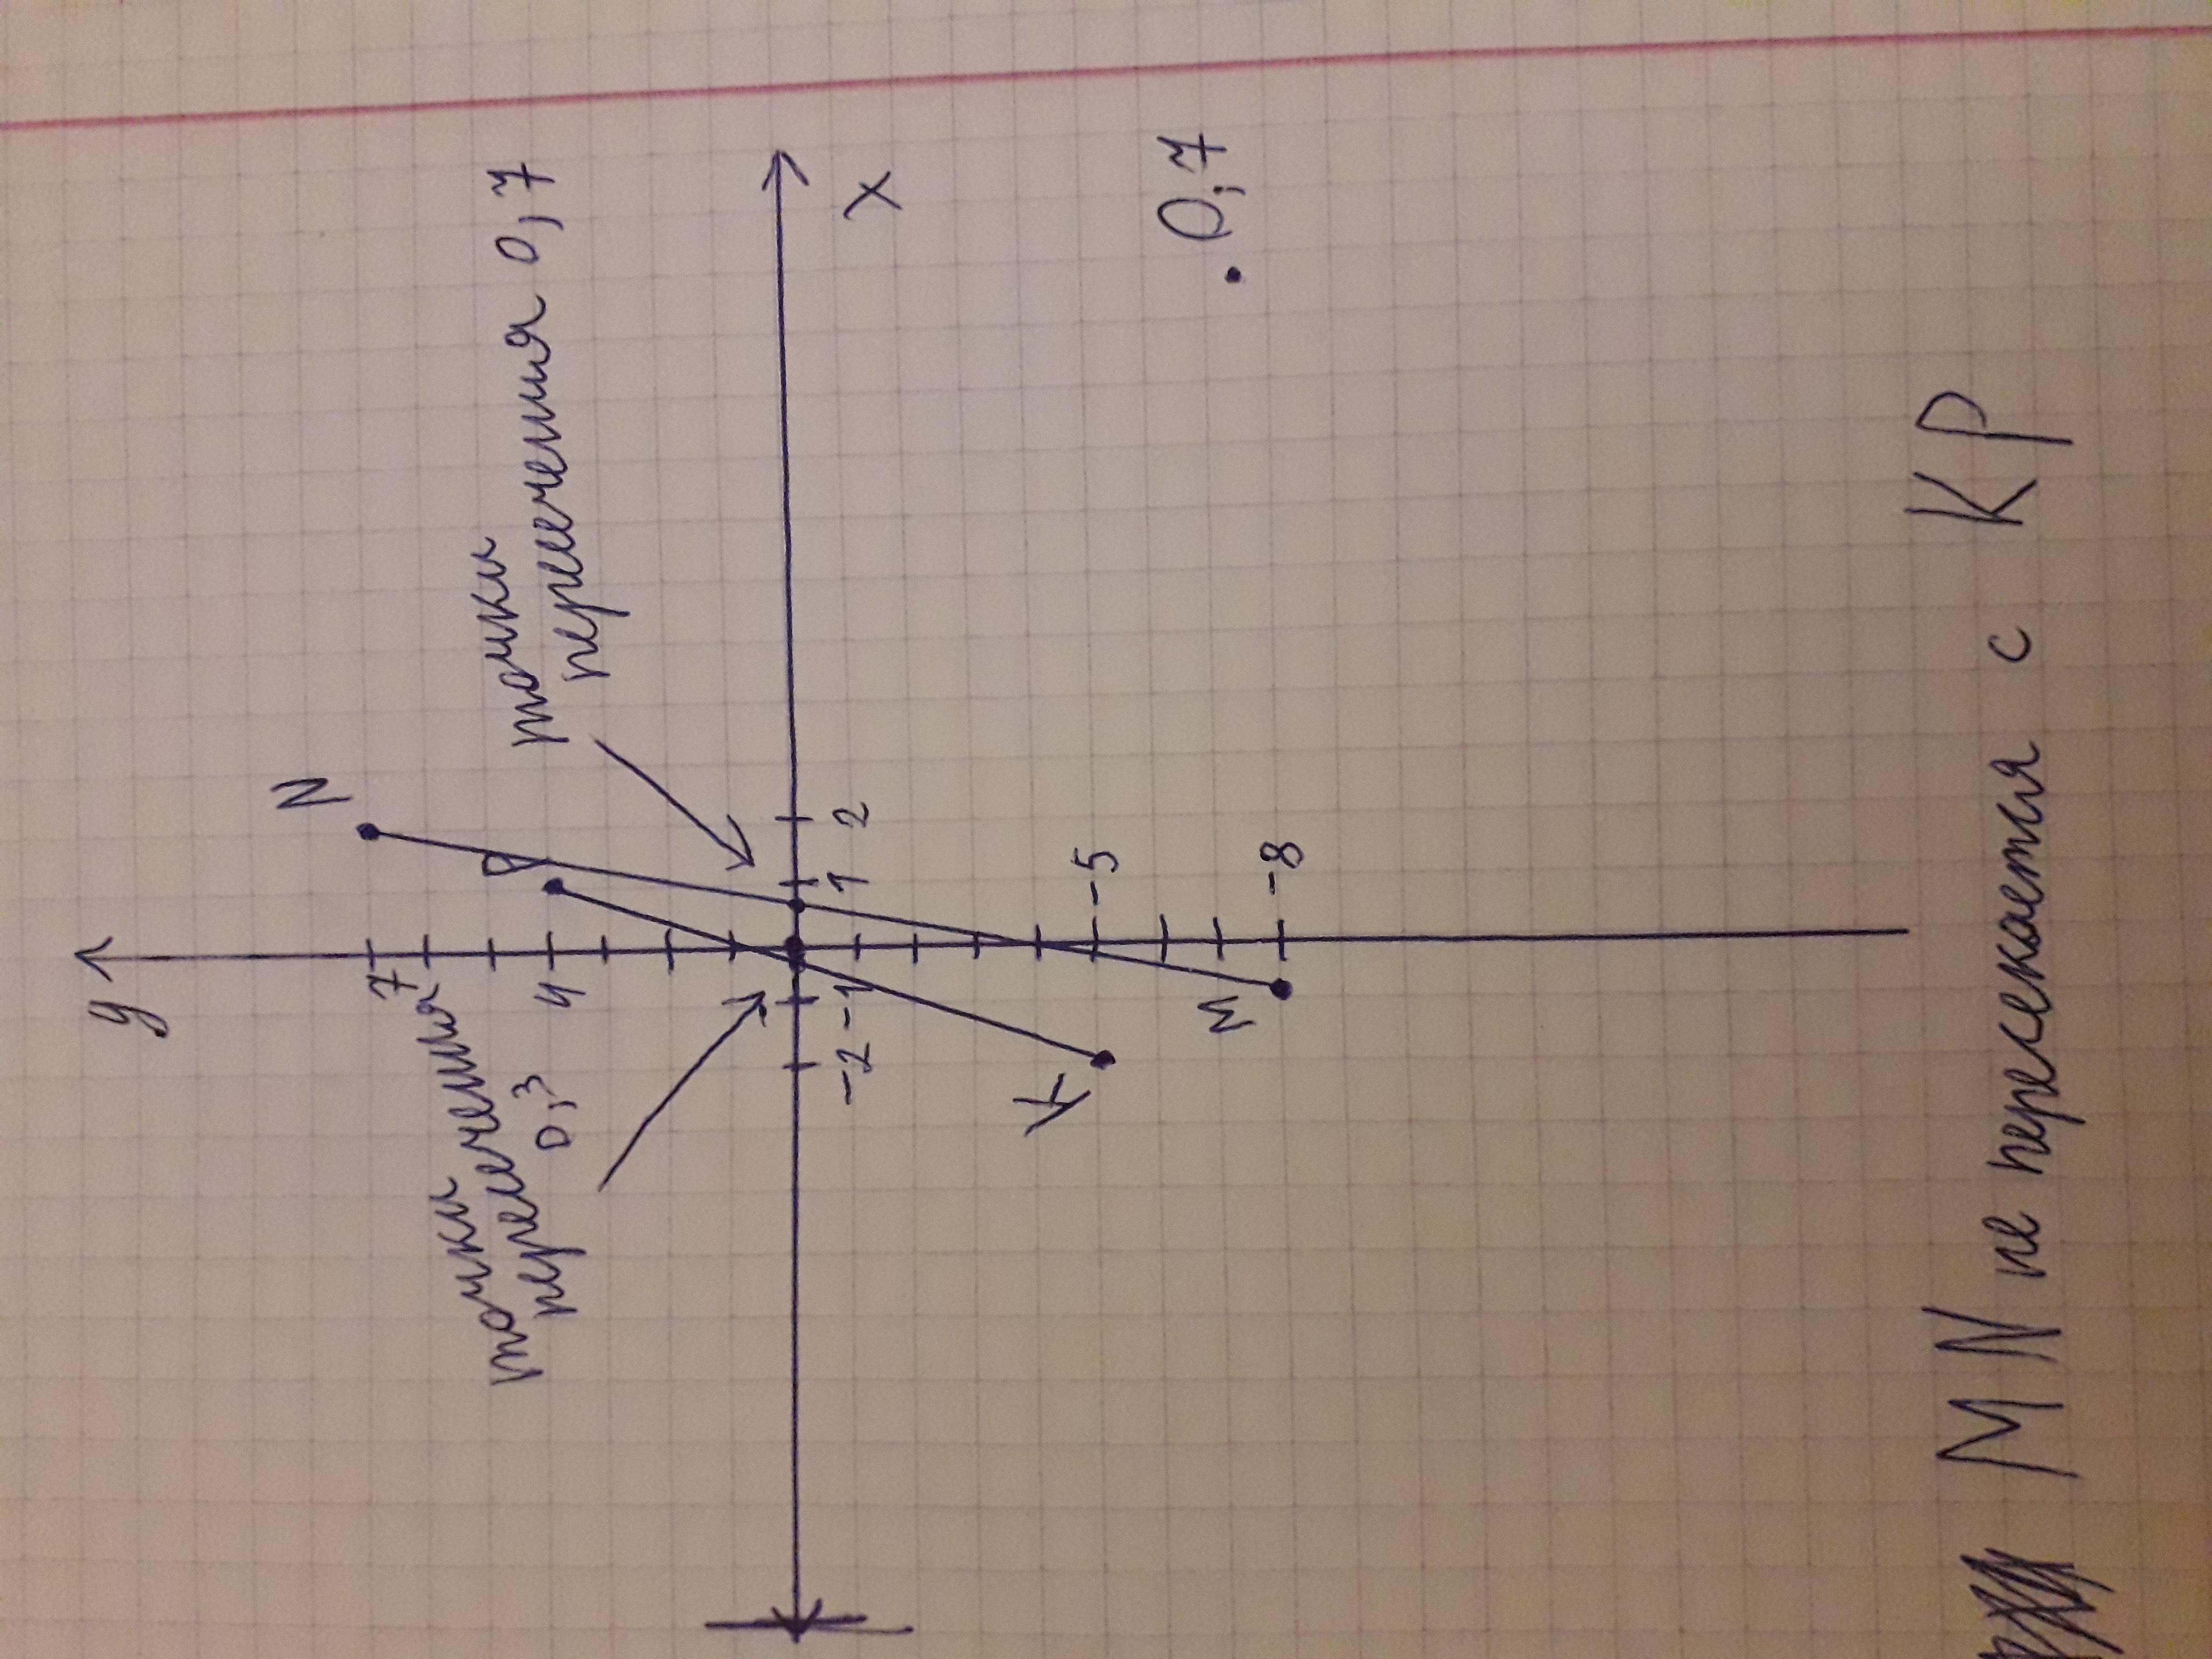 y
N
точки
пересечения 0,7
P
7
4
точки
пересечения
0,3
x
-2 -1 1 2
K
-5
M
-8
. 0,7
MN не пересекается с KP